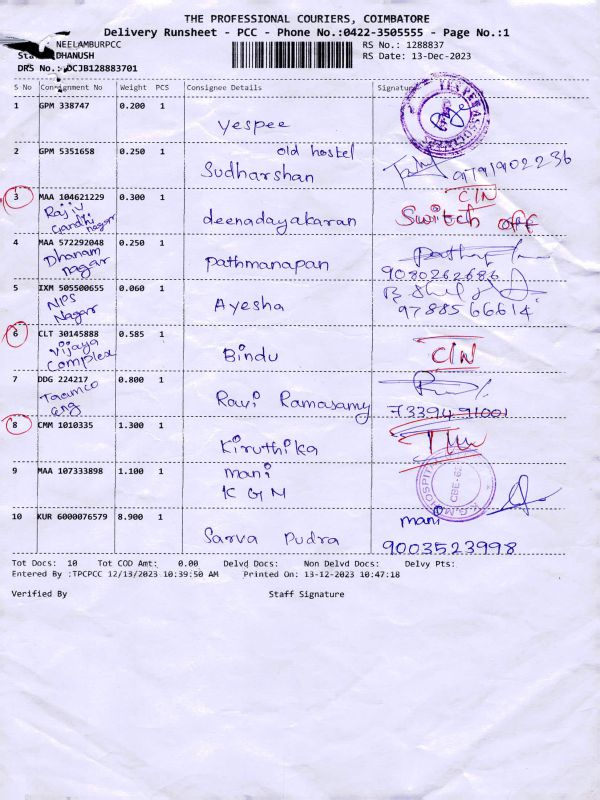 THE PROFESSIONAL COURIERS, COIMBATORE
Delivery Runsheet - PCC - Phone No.:0422-3505555 - Page No.:1
NEELAMBURPCC
RS No.: 1288837
DHANUSH
RS Date: 13-Dec-2023
DRS No.: DCJB128883701
S No Consignment No Weight PCS Consignee Details Signature
1 GPM 338747 0.200 1
Yespee
2 GPM 5351658 0.250 1 old hostel
Sudharshan 9791902236
3 MAA 104621229 0.300 1 C/N
Rajiv Gandhi nagar deenadayakaran Switch off
4 MAA 572292048 0.250 1
Dhanam nagar Pathmanapan
9080262686
5 IXM 505500655 0.060 1
NPS Nagar Ayesha 9788566614
6 CLT 30145888 0.585 1
Vijaya Complex Bindu C/N
7 DDG 224217 0.800 1
Eng Ravi Ramasamy 7339491001
8 CMM 1010335 1.300 1
Kiruthika
9 MAA 107333898 1.100 1 mani
K G M
10 KUR 6000076579 8.900 1 mani
Sarva Pudra 9003523998
Tot Docs: 10 Tot COD Amt: 0.00 Delvd Docs: Non Delvd Docs: Delvy Pts:
Entered By :TPCPCC 12/13/2023 10:39:50 AM Printed On: 13-12-2023 10:47:18
Verified By Staff Signature